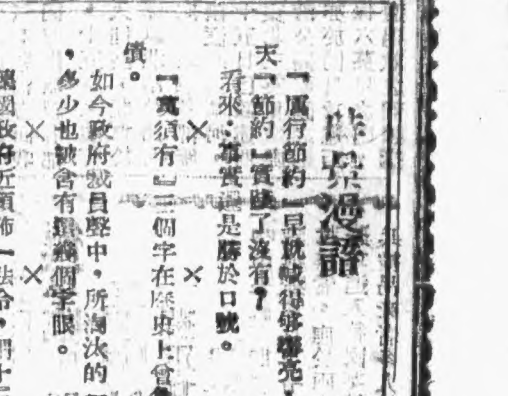 時景漫語
『厲行節約』早就喊得够嘹亮
天『節約』實踐了沒有？
看來：事實還是勝於口號。
×　×
『莫須有』三個字在歷史上曾
債。
如今政府裁員聲中，所淘汰的
，多少也被含有這幾個字眼。
×　×
國政府近頒佈一法令，